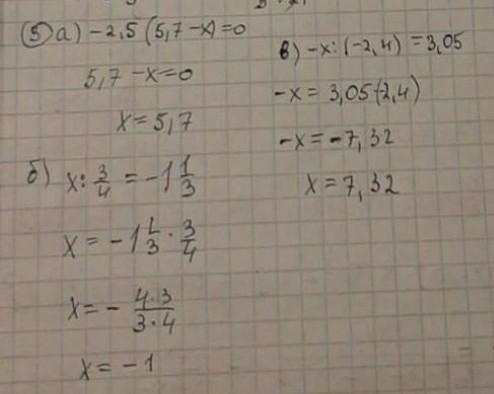 ⑤ а) -2,5(5,7-x)=0
5,7-x=0
x=5,7
б) x:3/4=-1 1/3
x=-1 1/3·3/4
x=-4·3/3·4
x=-1
в) -x:(-2,4)=3,05
-x=3,05(-2,4)
-x=-7,32
x=7,32